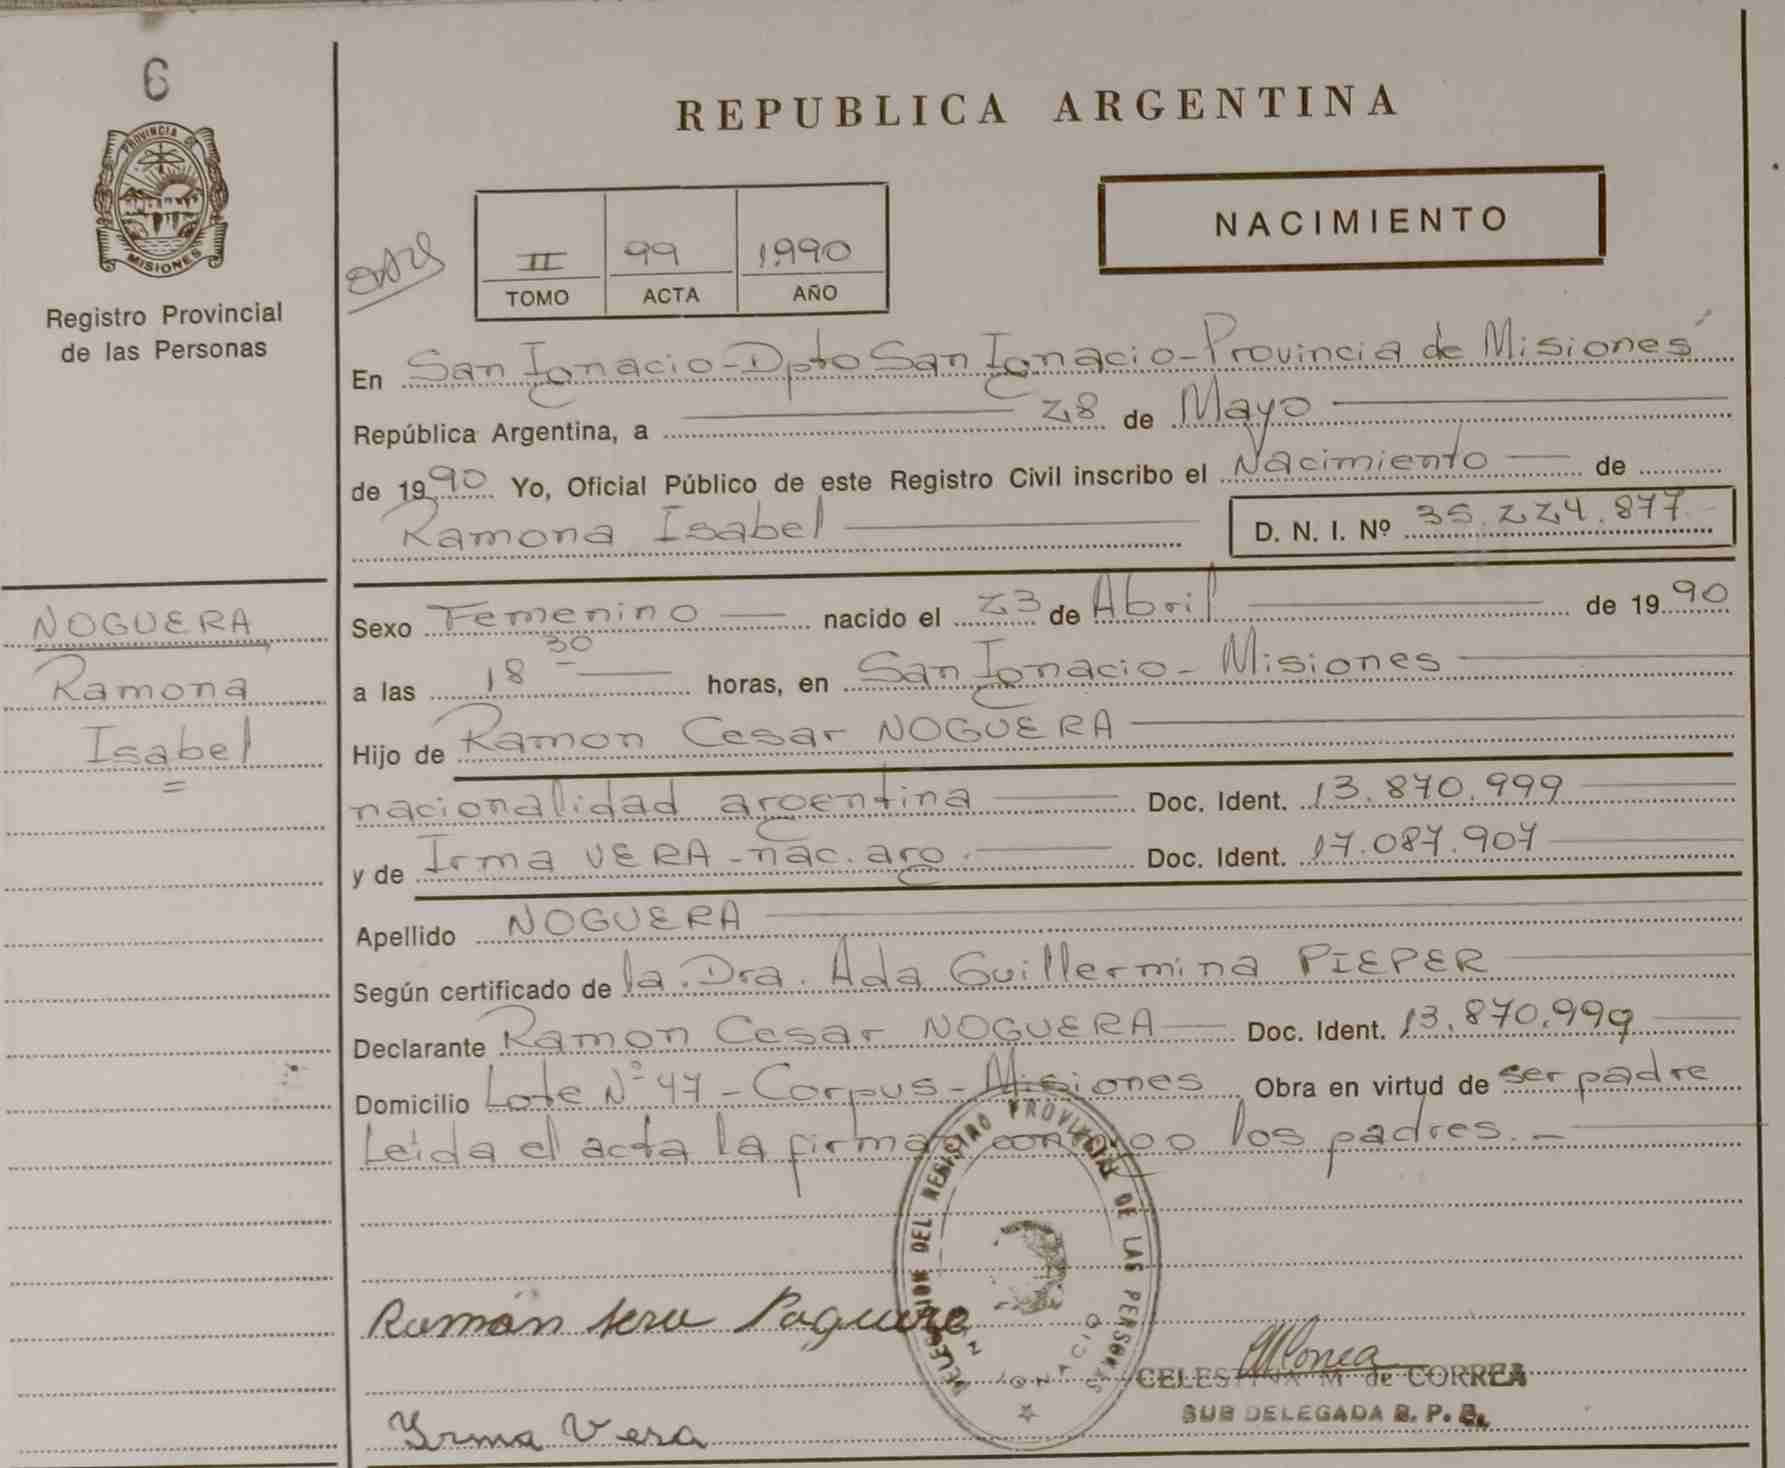 6
PROVINCIA DE
MISIONES
Registro Provincial
de las Personas
REPUBLICA ARGENTINA
NACIMIENTO
II 99 1990
TOMO ACTA AÑO
En San Ignacio - Dpto San Ignacio - Provincia de Misiones
República Argentina, a 28 de Mayo
de 1990 Yo, Oficial Público de este Registro Civil inscribo el Nacimiento de
Ramona Isabel D. N. I. Nº 35.224.877
NOGUERA
Ramona
Isabel
Sexo Femenino nacido el 23 de Abril de 1990
a las 18 30 horas, en San Ignacio - Misiones
Hijo de Ramon Cesar NOGUERA
nacionalidad argentina Doc. Ident. 13.870.999
y de Irma VERA - nac. arg. Doc. Ident. 17.087.907
Apellido NOGUERA
Según certificado de la Dra. Ada Guillermina PIEPER
Declarante Ramon Cesar NOGUERA Doc. Ident. 13.870.999
Domicilio Lote Nº 47 - Corpus - Misiones Obra en virtud de ser padre
Leida el acta la firman conmigo los padres. -
DELEGACION DEL REGISTRO PROVINCIAL DE LAS PERSONAS
SAN IGNACIO
Ramón
CELESTINA M de CORREA
SUB DELEGADA R. P. P.
Irma Vera